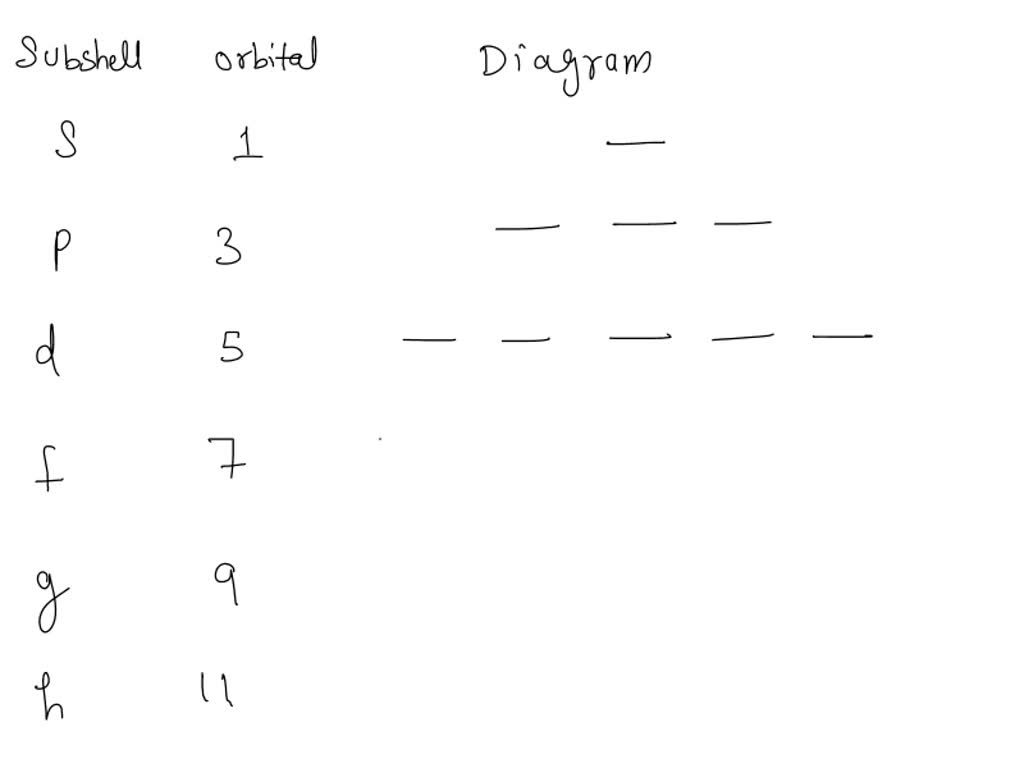 Subshell orbital Diagram
S 1 —
p 3 — — —
d 5 — — — — —
f 7
g 9
h 11